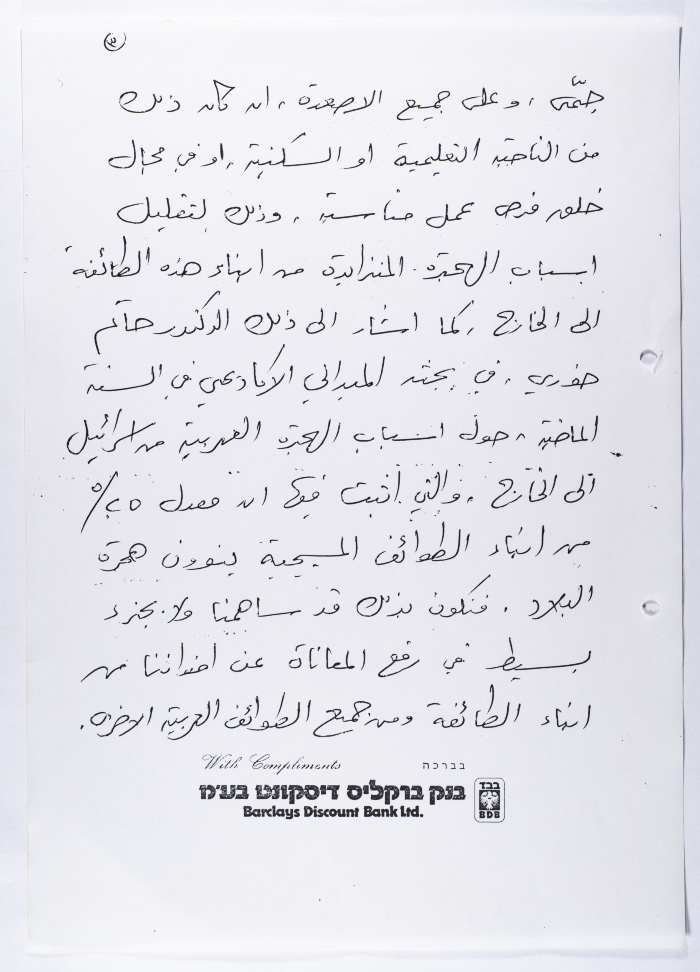 ٣
جمّة ، وعلى جميع الاصعدة ، ان كان ذلك
من الناحية التعليمية او السكنية ، او في مجال
خلق فرص عمل مناسبة ، وذلك لتقليل
اسباب الهجرة المتزايدة من ابناء هذه الطائفة
الى الخارج ، كما اشار الى ذلك الدكتور حاتم
خوري ، في بحثه الميداني الاكاديمي في السنة
الماضية ، حول اسباب الهجرة العربية من اسرائيل
الى الخارج ، والتي اثبت فيها ان معدل ٢٥%
من ابناء الطوائف المسيحية ينوون هجرة
البلاد . فنكون بذلك قد ساهمنا ولو بجزء
بسيط في رفع المعاناة عن اخواننا من
ابناء الطائفة ومن جميع الطوائف العربية الاخرى .
With Compliments בברכה
בנק ברקליס דיסקונט בע״מ
Barclays Discount Bank Ltd.
בבד
BDB